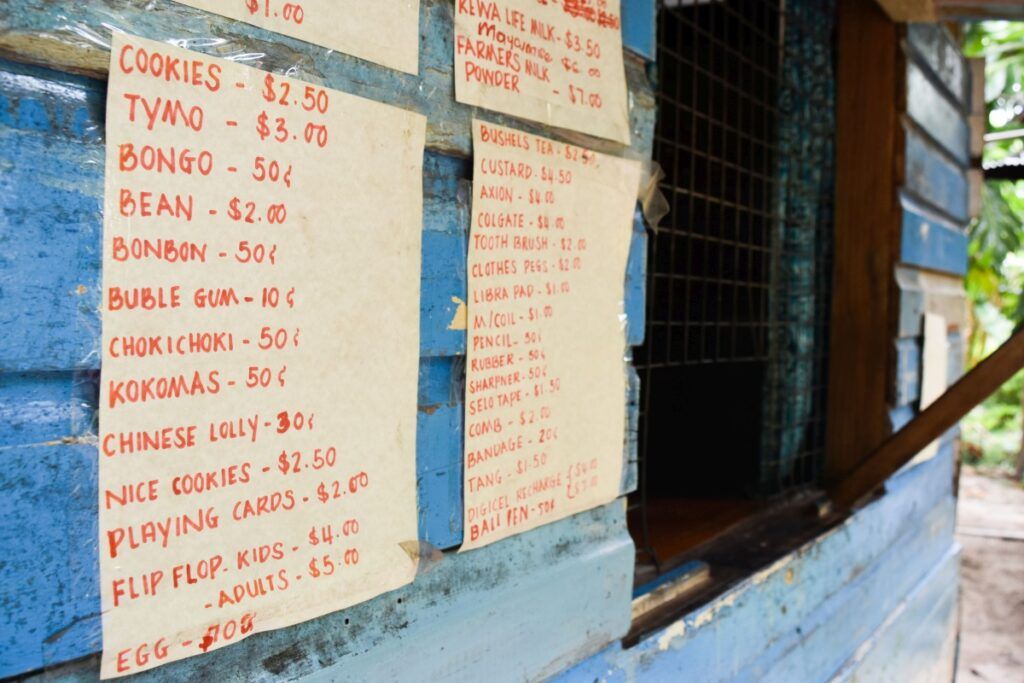 $1.00
COOKIES - $2.50
TYMO - $3.00
BONGO - 50¢
BEAN - $2.00
BONBON - 50¢
BUBLE GUM - 10¢
CHOKICHOKI - 50¢
KOKOMAS - 50¢
CHINESE LOLLY - 30¢
NICE COOKIES - $2.50
PLAYING CARDS - $2.00
FLIP FLOP. KIDS - $4.00
- ADULTS - $5.00
EGG - 70¢
KEWA LIFE MILK - $3.50
FARMERS MILK
POWDER - $7.00
BUSHELS TEA - $2.50
CUSTARD - $4.50
AXION - $4.00
COLGATE - $4.00
TOOTH BRUSH - $2.00
CLOTHES PEGS - $2.00
LIBRA PAD - $1.00
M/COIL - $1.00
PENCIL - 50¢
RUBBER - 50¢
SHARPNER - 50¢
SELO TAPE - $1.50
COMB - $2.00
BANDAGE - 20¢
TANG - $1.50
DIGICEL RECHARGE
BALL PEN - 50¢